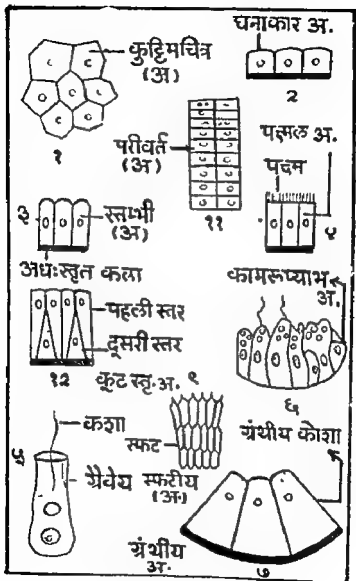 कुट्टिमचित्र
(अ)
१
घनाकार अ.
२
परिवर्त
(अ)
११
पक्ष्मल अ.
पक्ष्म
४
३
स्तम्भी
(अ)
अधःस्तृत कला
पहली स्तर
दूसरी स्तर
१२
कूट स्तृ. अ.
९
कामरूप्याभ
अ.
६
स्फट
स्फटीय
(अ)
कशा
५
ग्रैवेय
ग्रंथीय कोशा
ग्रंथीय
अ.
७